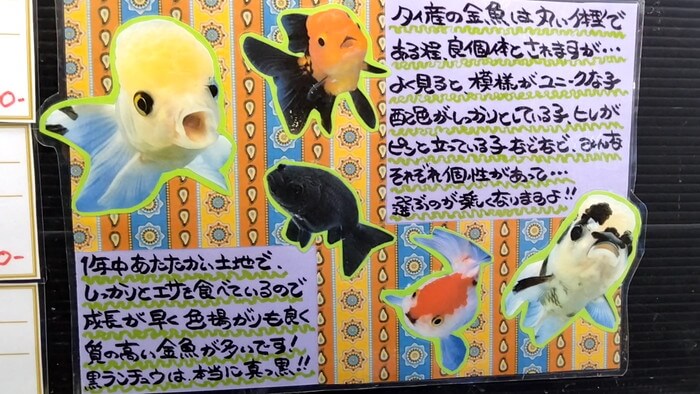 タイ産の金魚は丸い体型で
ある程、良個体とされますが…
よく見ると、模様がユニークな子
配色がしっかりとしている子、ヒレが
ピンと立っている子などなど、みんな
それぞれ個性があって…
選ぶのが楽しくなりますよ!!
1年中あたたかい土地で、
しっかりとエサを食べているので
成長が早く色揚がりも良く
質の高い金魚が多いです!
黒ランチュウは、本当に真っ黒!!
0-
0-